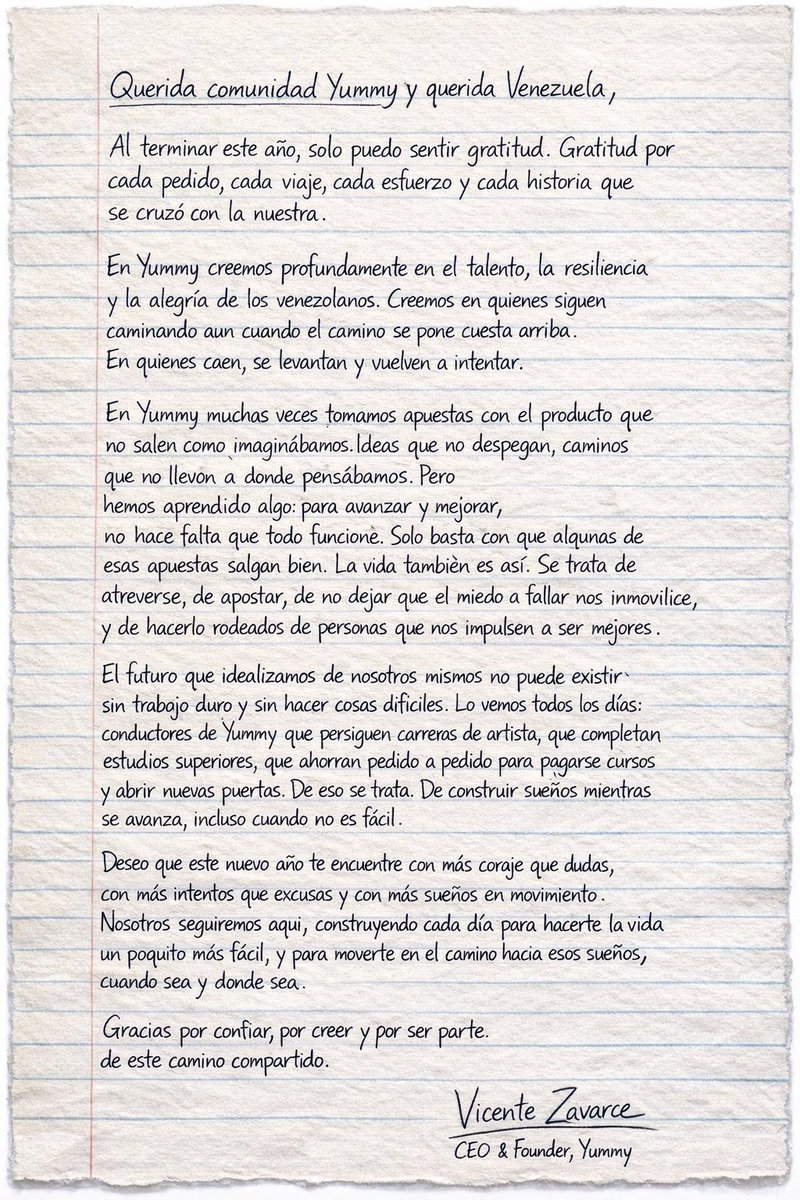 Querida comunidad Yummy y querida Venezuela,
Al terminar este año, solo puedo sentir gratitud. Gratitud por
cada pedido, cada viaje, cada esfuerzo y cada historia que
se cruzó con la nuestra.
En Yummy creemos profundamente en el talento, la resiliencia
y la alegría de los venezolanos. Creemos en quienes siguen
caminando aun cuando el camino se pone cuesta arriba.
En quienes caen, se levantan y vuelven a intentar.
En Yummy muchas veces tomamos apuestas con el producto que
no salen como imaginábamos. Ideas que no despegan, caminos
que no llevon a donde pensábamos. Pero
hemos aprendido algo: para avanzar y mejorar,
no hace falta que todo funcione. Solo basta con que algunas de
esas apuestas salgan bien. La vida tambièn es así. Se trata de
atreverse, de apostar, de no dejar que el miedo a fallar nos inmovilice,
y de hacerlo rodeados de personas que nos impulsen a ser mejores.
El futuro que idealizamos de nosotros mismos no puede existir
sin trabajo duro y sin hacer cosas dificiles. Lo vemos todos los días:
conductores de Yummy que persiguen carreras de artista, que completan
estudios superiores, que ahorran pedido a pedido para pagarse cursos
y abrir nuevas puertas. De eso se trata. De construir sueños mientras
se avanza, incluso cuando no es fácil.
Deseo que este nuevo año te encuentre con más coraje que dudas,
con más intentos que excusas y con más sueños en movimiento.
Nosotros seguiremos aqui, construyendo cada día para hacerte la vida
un poquito más fácil, y para moverte en el camino hacia esos sueños,
cuando sea y donde sea.
Gracias por confiar, por creer y por ser parte.
de este camino compartido.
Vicente Zavarce
CEO & Founder, Yummy